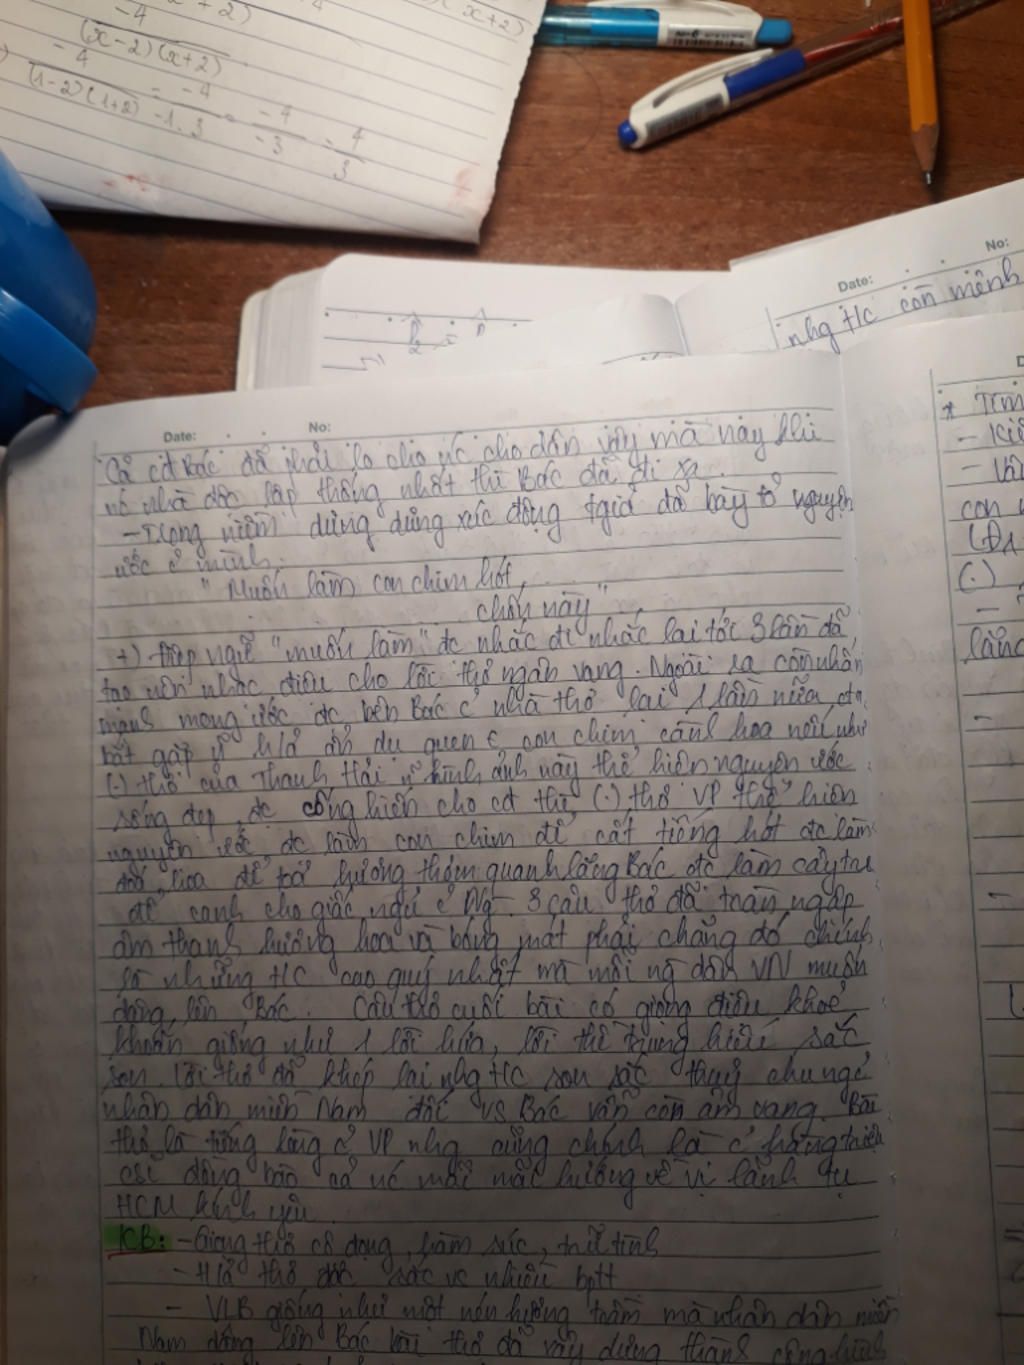 -4
(x-2)(x+2)
-4
(1-2)(1+2) = -4 -1.3 = -4 -3 = 4 3
No:
Date:
nhg t/c còn mênh
Date: No:
Cả cđ Bác đã phải lo cho nc cho dân vậy mà nay khi
nc nhà độc lập thống nhất thì Bác đã đi xa.
- Trong niềm dưng dưng xúc động tgiả đã bày tỏ nguyện
ước of mình.
"Muốn làm con chim hót,
chốn này"
+) điệp ngữ "muốn làm" đc nhắc đi nhắc lại tới 3 lần đã
tạo nên nhạc điệu cho lời thơ ngân vang. Ngoài ra còn nhấn
mạnh mong ước đc bên Bác of nhà thơ lại 1 lần nữa, ta
bắt gặp h/ả ẩn dụ quen con chim cành hoa nếu như
(.) thơ của Thanh Hải hình ảnh này thể hiện nguyện ước
sống đẹp, đc cống hiến cho cđ thì (.) thơ VP thể hiện
nguyện ước đc làm con chim để cất tiếng hót đc làm
hoa để toả hương thơm quanh lăng Bác đc làm cây tre
để canh cho giấc ngủ of Ng. 3 câu thơ đã tràn ngập
âm thanh hương hoa và bóng mát phải chăng đó chính
là những t/c cao quý nhất mà mỗi ng dân VN muốn
dâng lên Bác. Câu thơ cuối bài có giọng điệu khoẻ
khoắn giống như 1 lời hứa, lời thề trung hiếu sắc
son. Lời thơ đã khép lại nhg t/c son sắt thuỷ chung of
nhân dân miền Nam đối vs Bác vẫn còn âm vang. Bài
thơ là tiếng lòng of VP nhg cũng chính là of hàng triệu
đồng bào cả nc mãi mãi hướng về vị lãnh tụ
HCM kính yêu
KB: - Giọng thơ cô đọng, hàm súc, trữ tình
- H/ả thơ đặc sắc vs nhiều bptt
- VLB giống như một nén hương trầm mà nhân dân miền
Nam dâng lên Bác bài thơ đã xây dựng thành công hình